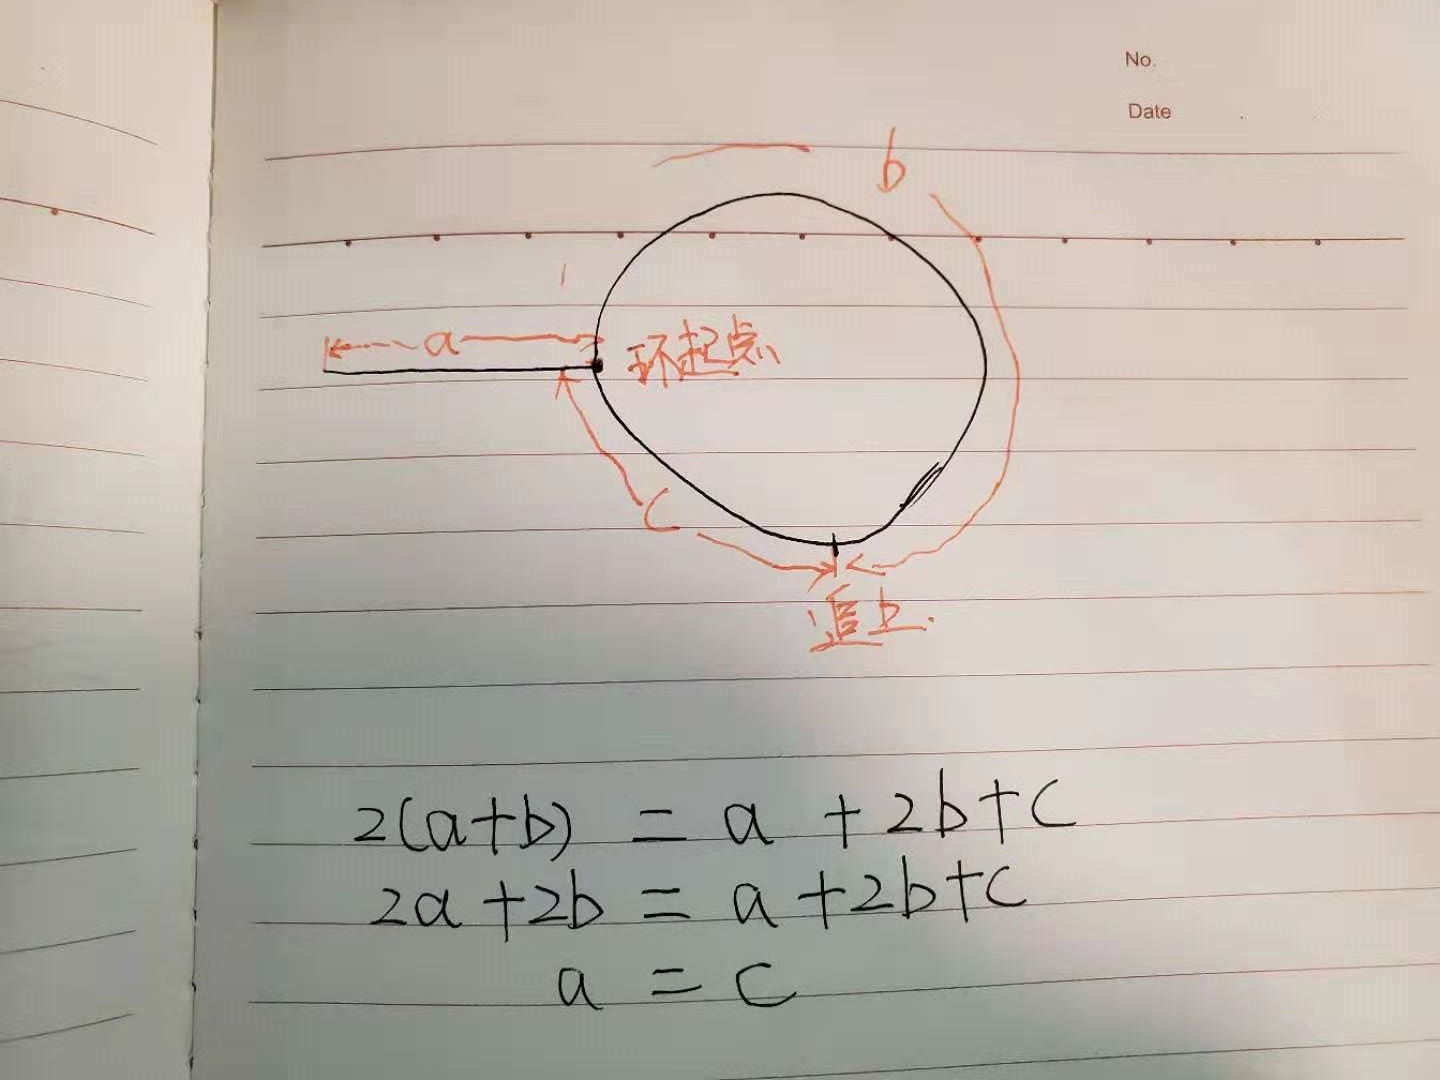 No.
Date
b
a
环起点
c
追上.
2(a+b) = a + 2b+c
2a+2b = a+2b+c
a = c